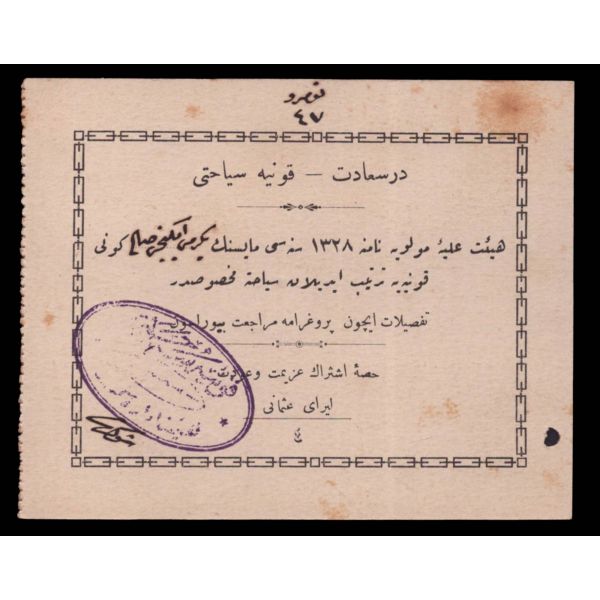 نومرو
٤٧
درسعادت — قونیه سیاحتی
هیئت علیهٔ مولویه نامنه ١٣٢٨ سنه سی مایسنك یگرمی ایكنجی صالی كونی
قونیه یه ترتیب ایدیلان سیاحته مخصوصدر
تفصیلات ایچون پروغرامه مراجعت بیورلسون
حصهٔ اشتراك عزیمت وعودت
لیرای عثمانی
٤